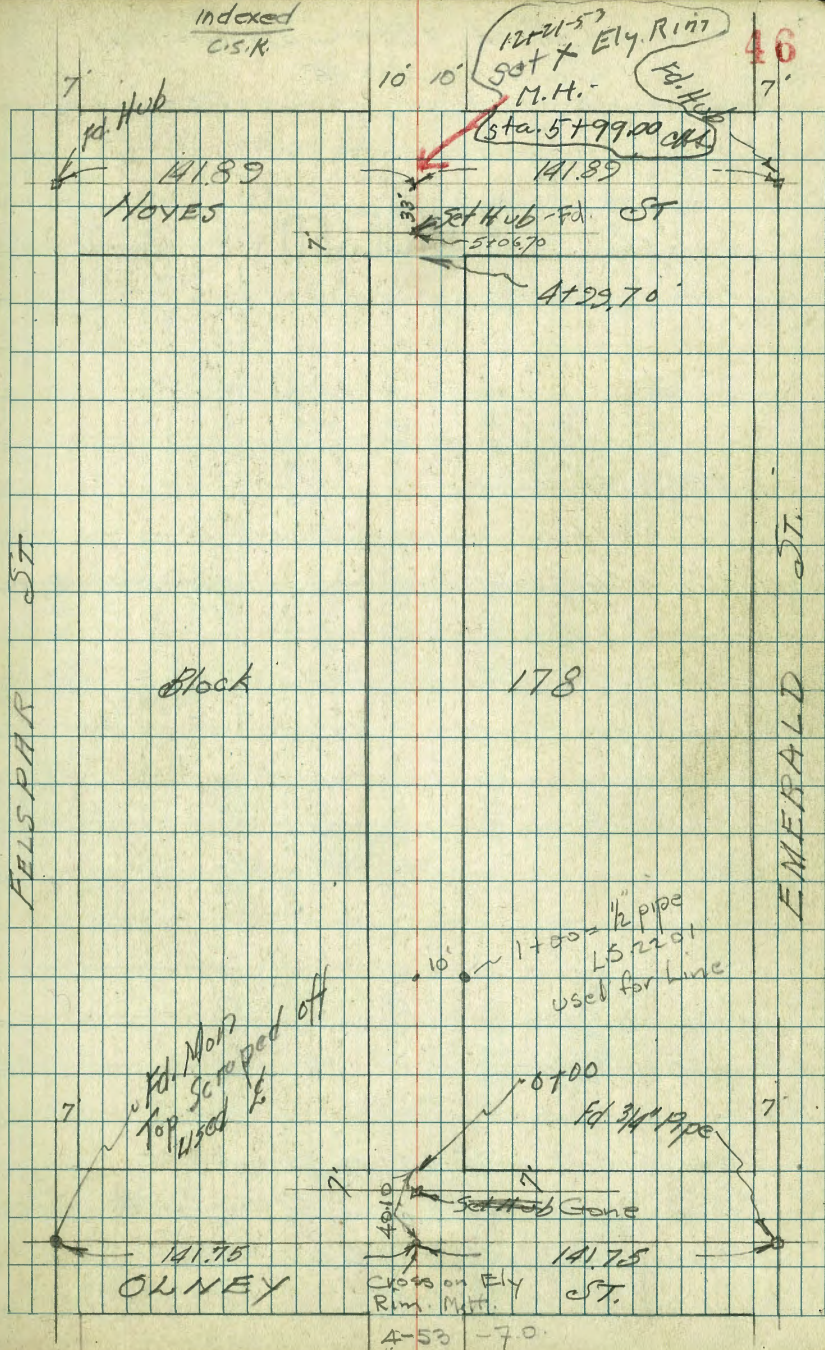 Indexed
C.S.K.
46
12-21-53
Set X Ely. Rim
M.H.-
Sta. 5+99.00
7'
10' 10'
7'
Fd. Hub
Fd. Hub
141.89
141.89
NOYES
ST
33'
Set Hub - Fd.
5+06.70
7'
4+99.70
FELSPAR ST
Block
178
EMERALD ST.
10'
1+00 = 1/2" pipe
L.S. 2201
used for Line
Fd. Mon
Top Scraped off
used ℄
0+00
Fd 3/4" Pipe
7'
7'
7'
7'
40.10
Set Hub Gone
141.75
141.75
OLNEY
ST.
Cross on Ely
Rim. M.H.
4-53 -7.0